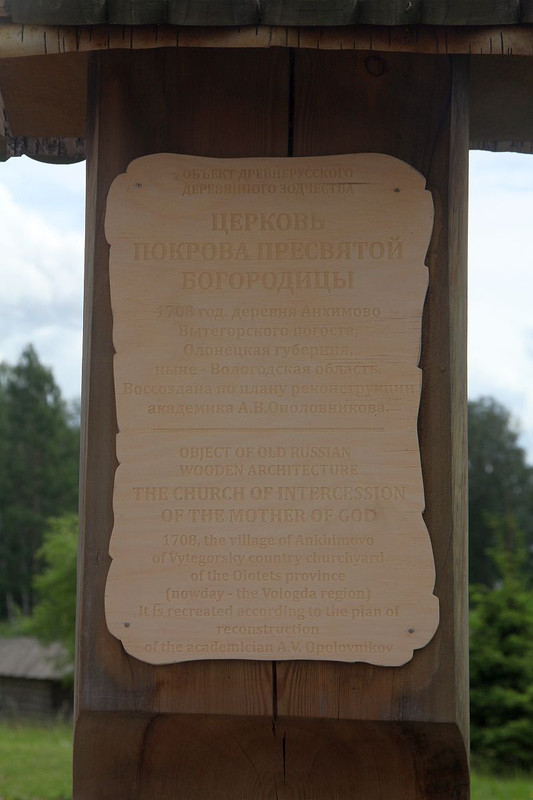 ОБЪЕКТ ДРЕВНЕРУССКОГО
ДЕРЕВЯННОГО ЗОДЧЕСТВА
ЦЕРКОВЬ
ПОКРОВА ПРЕСВЯТОЙ
БОГОРОДИЦЫ
1708 год, деревня Анхимово
Вытегорского погоста,
Олонецкая губерния,
ныне - Вологодская область.
Воссоздана по плану реконструкции
академика А.В.Ополовникова.
OBJECT OF OLD RUSSIAN
WOODEN ARCHITECTURE
THE CHURCH OF INTERCESSION
OF THE MOTHER OF GOD
1708, the village of Ankhimovo
of Vytegorsky country churchyard
of the Olotets province
(nowday - the Vologda region)
It is recreated according to the plan of
reconstruction
of the academician A.V. Opolovnikov